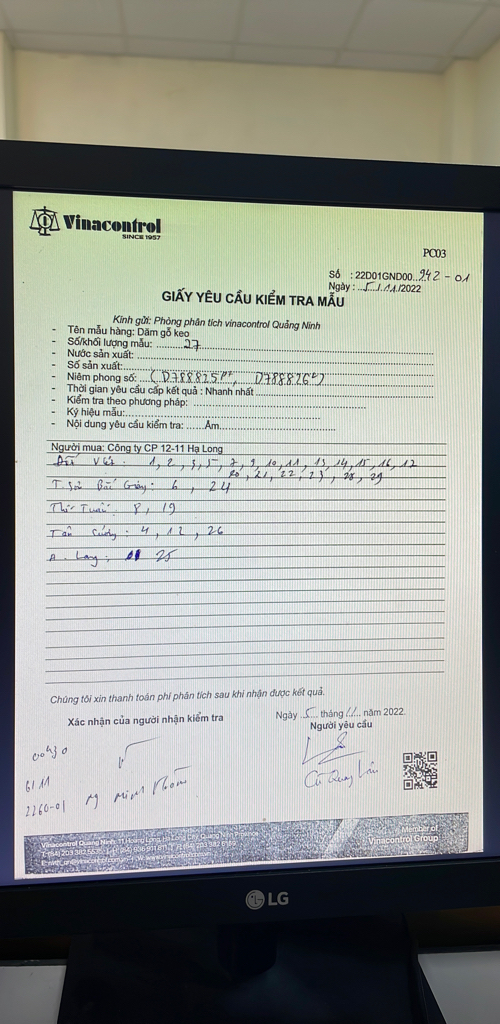 Vinacontrol
SINCE 1957
PC03
Số : 22D01GND00..942-01
Ngày : ..5../.11/2022
GIẤY YÊU CẦU KIỂM TRA MẪU
Kính gửi: Phòng phân tích vinacontrol Quảng Ninh
- Tên mẫu hàng: Dăm gỗ keo
- Số/khối lượng mẫu: 27
- Nước sản xuất:
- Số sản xuất:
- Niêm phong số: (D788825, D788826)
- Thời gian yêu cầu cấp kết quả : Nhanh nhất
- Kiểm tra theo phương pháp:
- Ký hiệu mẫu:
- Nội dung yêu cầu kiểm tra: .....Ẩm
Người mua: Công ty CP 12-11 Hạ Long
1, 2, 3, 5, 7, 9, 10, 11, 13, 14, 15, 16, 17
20, 21, 22, 23, 28, 29
T. Sơn Bắc Giang: 6, 24
8, 19
Tân : 4, 12, 26
A. Long: 25
Chúng tôi xin thanh toán phí phân tích sau khi nhận được kết quả.
Xác nhận của người nhận kiểm tra
Ngày 5 tháng 11 năm 2022
Người yêu cầu
6/11
2260-01
Minh
Cù Quang
Member of
Vinacontrol Group
Vinacontrol Quảng Ninh: 11 Hoàng Long,
LG